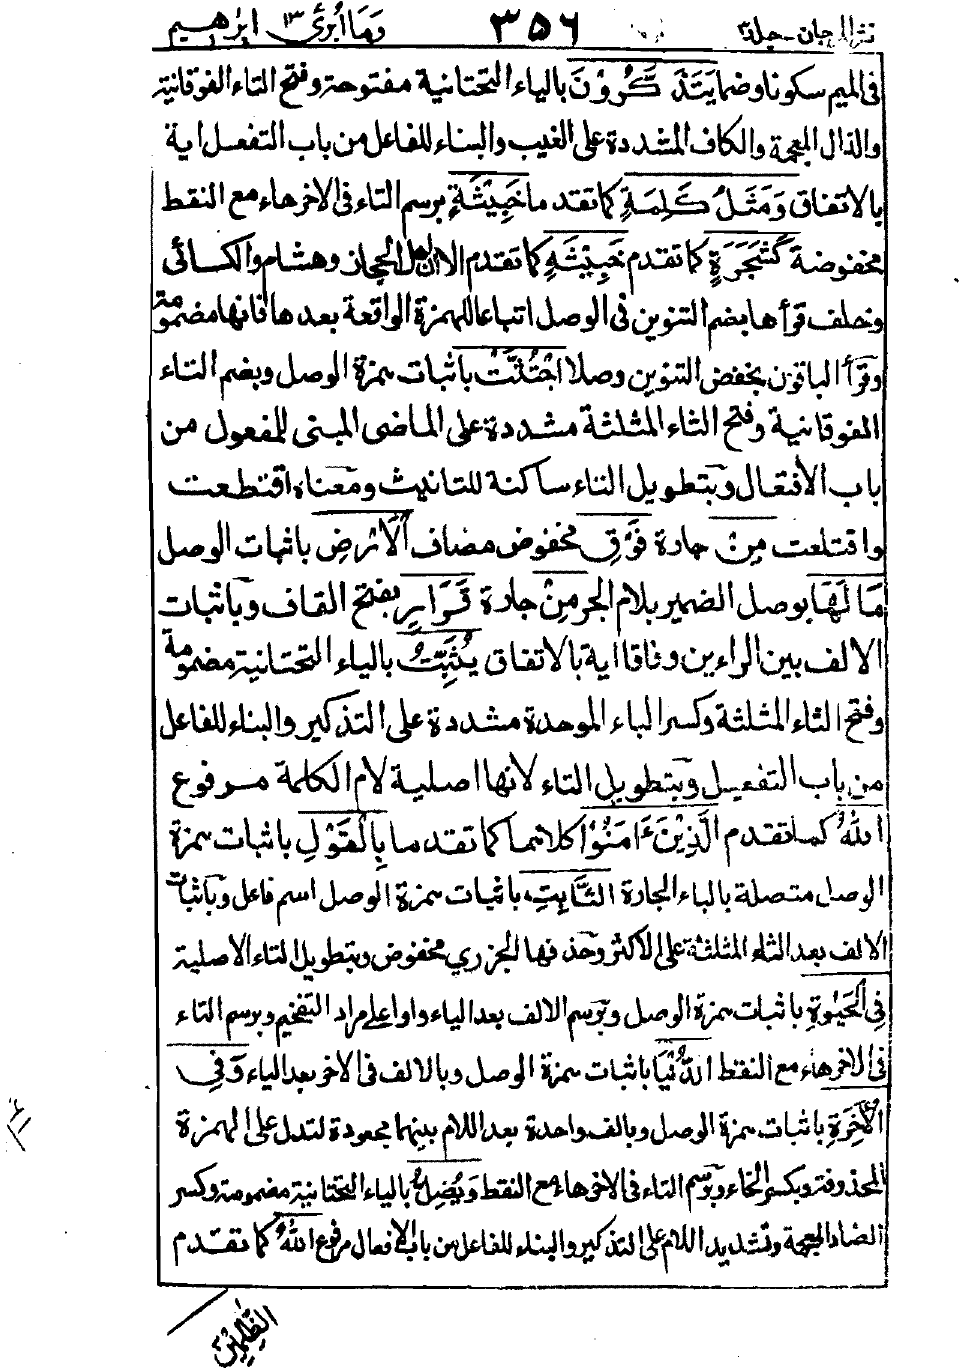 نثر المرجان - جلد ٣ ٣٥٦ وَمَا أُبَرِّئُ ١٣ ابرٰهيم
فى الميم سكونا وضما يَتَذَكَّرُوْنَ بالياء التحتانية مفتوحة وفتح التاء الفوقانية
والذال المعجمة والكاف المشددة على الغيب والبناء للفاعل من باب التفعل اية
بالاتفاق وَمَثَلُ كَلِمَةٍ كما تقد ما خَبِيْثَةٍ برسم التاء فى الاخر هاء مع النقط
مخفوضة كَشَجَرَةٍ كما تقدم خَبِيْثَةِ كما تقدم الا ان اهل الحجاز وهشام والكسائى
وخلف قرأ ها بضم التنوين فى الوصل اتباعا للهمزة الواقعة بعد ها فانها مضمومة
وقرأ الباقون بخفض التنوين وصلا اجْتُثَّتْ باثبات همزة الوصل وبضم التاء
الفوقانية وفتح الثاء المثلثة مشددة على الماضى المبنى للمفعول من
باب الافتعال وبتطويل التاء ساكنة للتانيث ومعناه اقتطعت
واقتلعت مِنْ جارة فَوْقِ مخفوض مضاف الْاَرْضِ باثبات الوصل
مَا لَهَا بوصل الضمير بلام الجر مِنْ جارة قَرَارٍ بفتح القاف وباثبات
الالف بين الراءين وفاقا اية بالاتفاق يُثَبِّتُ بالياء التحتانية مضمومة
وفتح الثاء المثلثة وكسر الباء الموحدة مشددة على التذكير والبناء للفاعل
من باب التفعيل وبتطويل التاء لانها اصلية لام الكلمة مرفوع
اللّٰهُ كما تقدم الَّذِيْنَ ءَامَنُوْا كلاهما كما تقد ما بِالْقَوْلِ باثبات همزة
الوصل متصلة بالباء الجارة الثَّابِتِ باثبات همزة الوصل اسم فاعل وباثبات
الالف بعد الثاء المثلثة على الاكثر وحذ فها الجزري مخفوض وبتطويل التاء الاصلية
فِى الْحَيٰوةِ باثبات همزة الوصل وبرسم الالف بعد الياء واوا على مراد التفخيم وبرسم التاء
فى الاخر هاء مع النقط الدُّنْيَا باثبات همزة الوصل وبالالف فى الاخر بعد الياء وَفِى
الْاٰخِرَةِ باثبات همزة الوصل وبالف واحدة بعد اللام بينهما مجعودة لتدل على الهمزة
المحذوفة وبكسر الخاء وبرسم التاء فى الاخر هاء مع النقط وَيُضِلُّ بالياء التحتانية مضمومة وكسر
الضاد المعجمة وتشديد اللام على التذكير والبناء للفاعل من باب الافعال مرفوع اللّٰهُ كما تقدم
الظّٰلِمِيْنَ